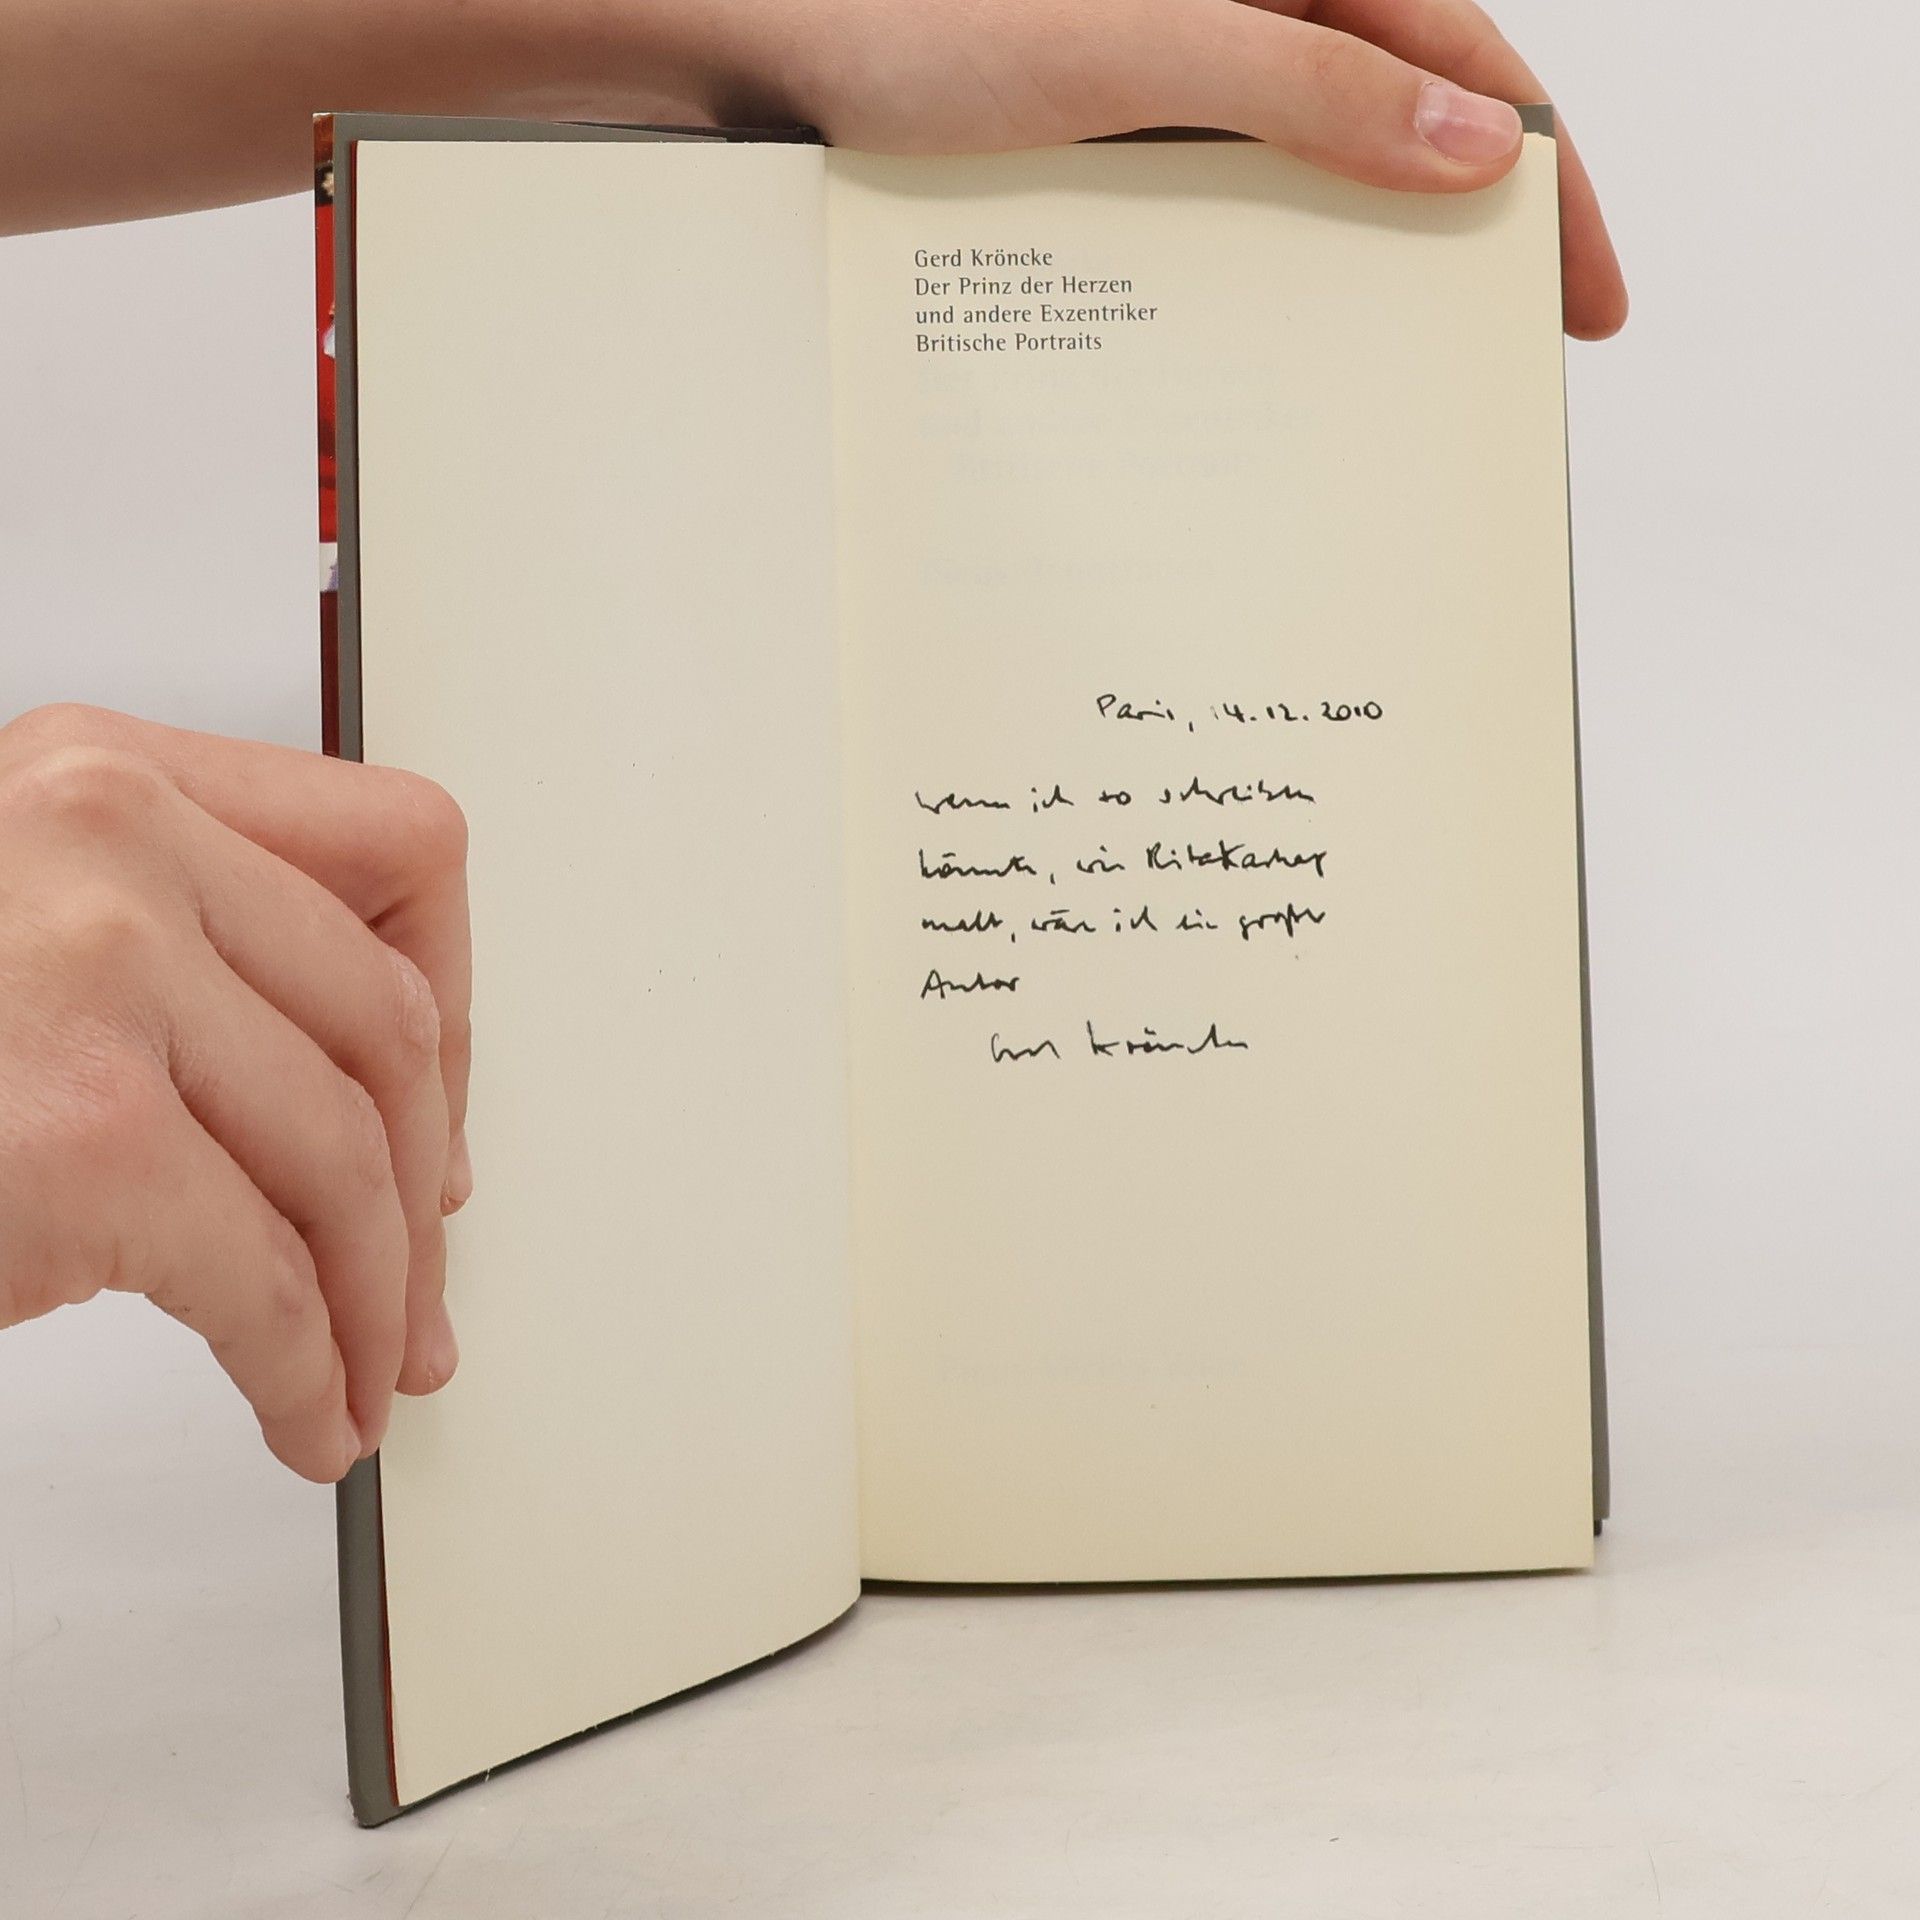 Gerd Kröncke
Der Prinz der Herzen
und andere Exzentriker
Britische Portraits
Paris, 14.12.2010
wenn ich so schreiben
könnte, wie Rita
malt, wär ich ein großer
Autor
Gerd Kröncke